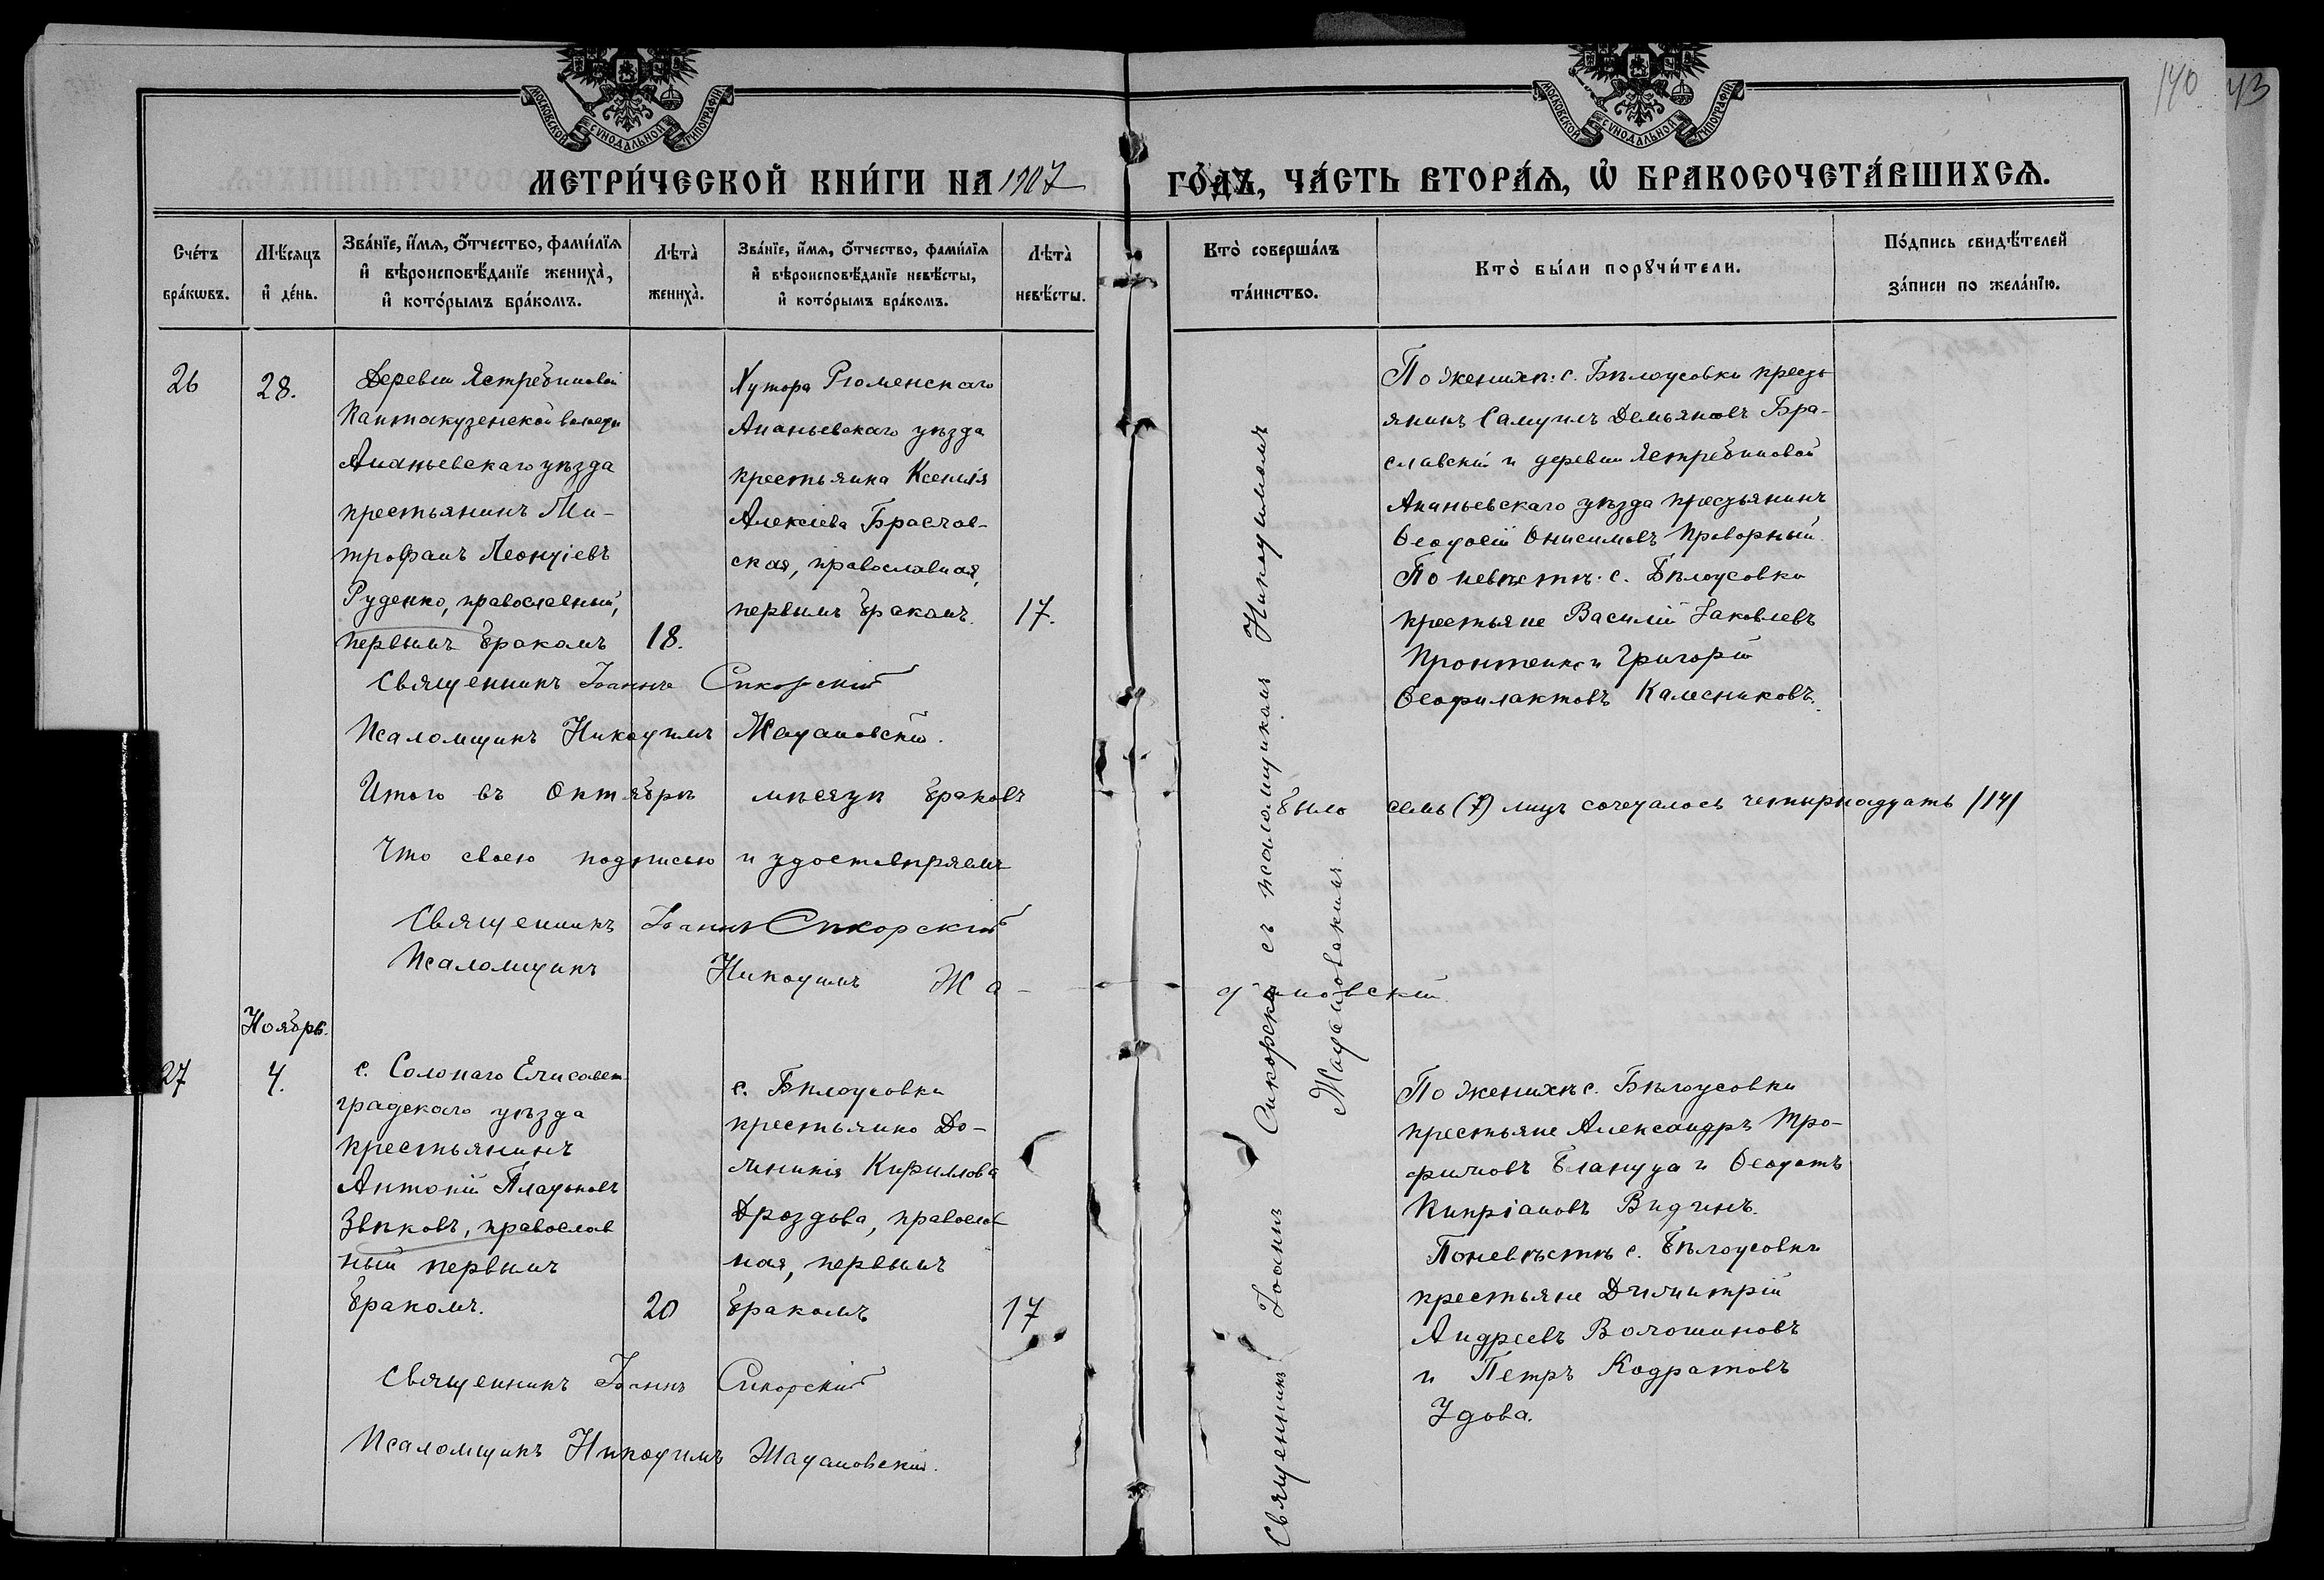 140 43
МОСКОВСКОЙ СѴНОДАЛЬНОЙ ТИПОГРАФІИ
МОСКОВСКОЙ СѴНОДАЛЬНОЙ ТИПОГРАФІИ
МЕТРИ́ЧЕСКОЙ КНИ́ГИ НА 1907 ГО́ДЪ, ЧА́СТЬ ВТОРА́Ѧ, Ѡ҆ БРАКОСОЧЕТА́ВШИХСѦ.
Сче́тъ
бра́кѡвъ.
Мѣ́сяцъ
и҆ де́нь.
Зва́нїе, и҆́мѧ, ѻ҆́тчество, фами́лїѧ
и҆ вѣроисповѣ́данїе жениха̀,
и҆ кото́рымъ бра́комъ.
Лѣта̀
жениха̀.
Зва́нїе, и҆́мѧ, ѻ҆́тчество, фами́лїѧ
и҆ вѣроисповѣ́данїе невѣ́сты,
и҆ кото́рымъ бра́комъ.
Лѣта̀
невѣ́сты.
Кто̀ соверша́лъ
та́инство.
Кто̀ бы́ли порꙋчи́тели.
По́дпись свидѣ́телей
за́писи по жела́нїю.
26
28.
Деревни Ястребиновой
Кантакузенской волости
Ананьевскаго уѣзда
крестьянинъ Ми-
трофанъ Леонтіевъ
Руденко, православный,
первымъ бракомъ
18.
Хутора Рюменскаго
Ананьевскаго уѣзда
крестьянка Ксенія
Алексіева Браслав-
ская, православная,
первымъ бракомъ.
17.
По женихѣ: с. Бѣлоусовки кресть
янинъ Самуилъ Демьяновъ Бра-
славскій и деревни Ястребиновой
Ананьевскаго уѣзда крестьянинъ
Ѳеодосій Онисимовъ Проворный.
По невѣстѣ: с. Бѣлоусовки
крестьяне Василій Іаковлевъ
Пронтенко и Григорій
Ѳеофилактовъ Калесниковъ.
Священникъ Іоаннъ Сикорскій
Псаломщикъ Никодимъ Жадановскій.
Итого въ Октябрѣ мѣсяцѣ браковъ было семь (7) лицъ сочеталось четырнадцать /14/
Что своею подписью и удостовѣряемъ
Священникъ Іоаннъ Сикорскій
Псаломщикъ Никодимъ Жа-
дановскій.
Священникъ Іоаннъ Сикорскій съ псаломщикомъ Никодимомъ
Жадановскимъ.
Ноябрь.
27
4.
с. Солонаго Елисавет
градскаго уѣзда
крестьянинъ
Антоній Платоновъ
Звѣковъ, православ
ный первымъ
бракомъ.
20
с. Бѣлоусовки
крестьянка До-
миникія Кириллова
Дроздова, православ
ная, первымъ
бракомъ
17
По женихѣ с. Бѣлоусовки
крестьяне Александръ Тро-
фимовъ Блануца и Ѳеодотъ
Кипріановъ Видинъ.
По невѣстѣ с. Бѣлоусовки
крестьяне Димитрій
Андреевъ Волошиновъ
и Петръ Кодратовъ
Удова.
Священникъ Іоаннъ Сикорскій
Псаломщикъ Никодимъ Жадановскій.